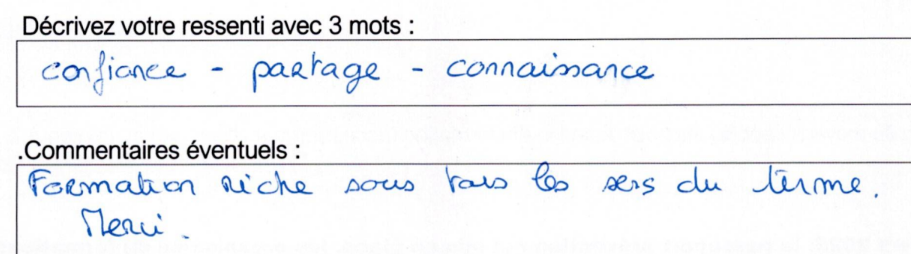 Décrivez votre ressenti avec 3 mots :
confiance - partage - connaissance
.Commentaires éventuels :
Formation riche sous tous les sens du terme.
Merci.